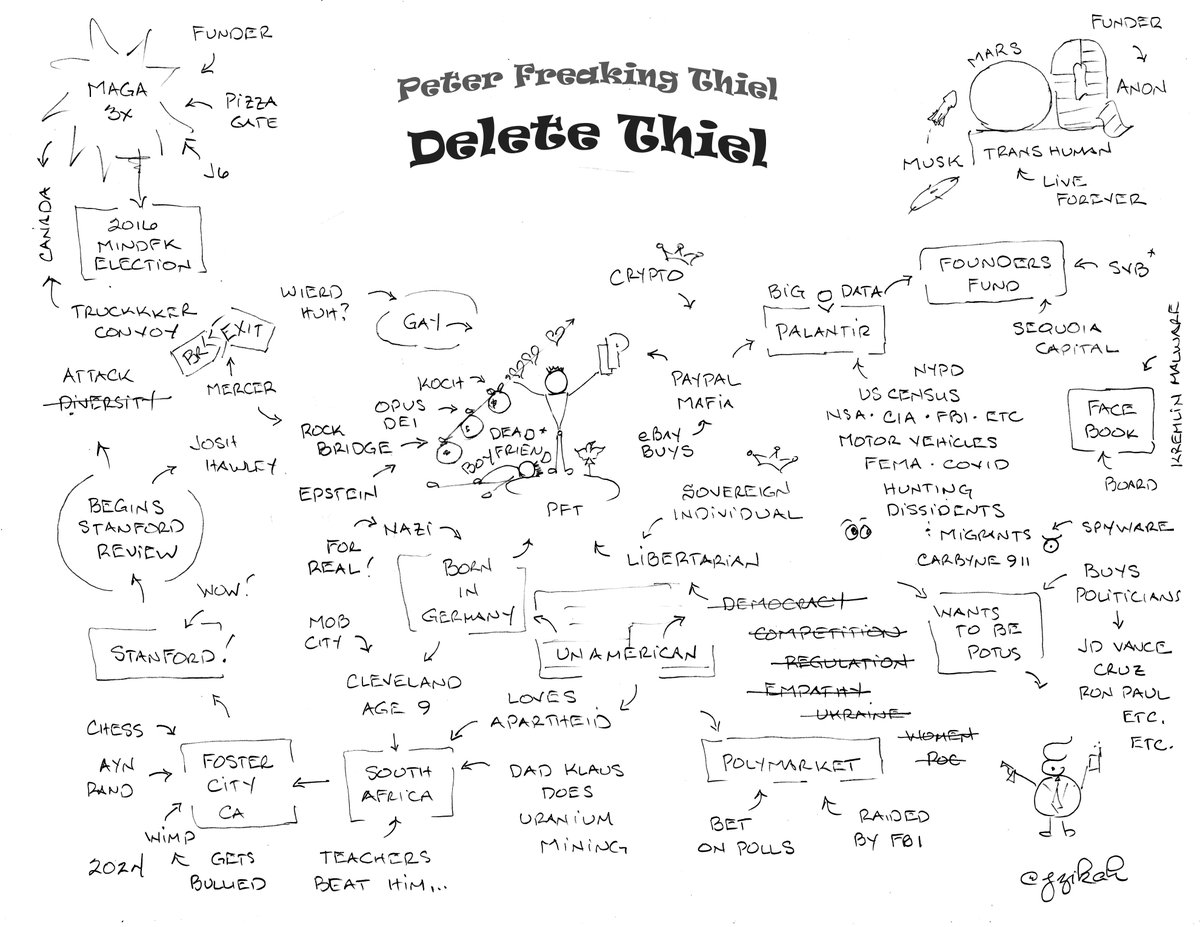 Peter Freaking Thiel
Delete Thiel
FUNDER
MAGA
3X
PIZZA
GATE
J6
CANADA
2016
MINDFK
ELECTION
TRUCKKKER
CONVOY
BR
EXIT
MERCER
WIERD
HUH?
GAY
ATTACK
DIVERSITY
JOSH
HAWLEY
BEGINS
STANFORD
REVIEW
WOW!
STANFORD!
CHESS
AYN
RAND
WIMP
GETS
BULLIED
2024
FOSTER
CITY
CA
KOCH
OPUS
DEI
ROCK
BRIDGE
EPSTEIN
DEAD
BOYFRIEND
PFT
P
NAZI
FOR
REAL!
BORN
IN
GERMANY
MOB
CITY
CLEVELAND
AGE 9
SOUTH
AFRICA
TEACHERS
BEAT HIM,...
LOVES
APARTHEID
DAD KLAUS
DOES
URANIUM
MINING
UNAMERICAN
CRYPTO
PAYPAL
MAFIA
eBAY
BUYS
SOVEREIGN
INDIVIDUAL
LIBERTARIAN
DEMOCRACY
COMPETITION
REGULATION
EMPATHY
UKRAINE
WOMEN
POC
POLYMARKET
BET
ON POLLS
RAIDED
BY FBI
FUNDER
MARS
Q
ANON
MUSK
TRANSHUMAN
LIVE
FOREVER
BIG DATA
PALANTIR
FOUNDERS
FUND
SVB*
SEQUOIA
CAPITAL
NYPD
US CENSUS
NSA • CIA • FBI • ETC
MOTOR VEHICLES
FEMA • COVID
HUNTING
DISSIDENTS
MIGRANTS
CARBYNE 911
SPYWARE
KREMLIN MALWARE
FACE
BOOK
BOARD
WANTS
TO BE
POTUS
BUYS
POLITICIANS
JD VANCE
CRUZ
RON PAUL
ETC.
ETC.
@gzikah